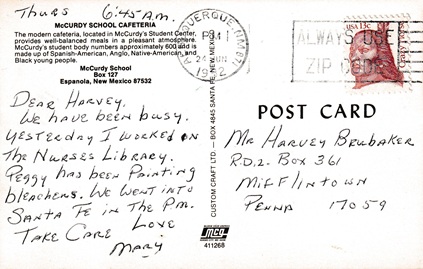 Thurs 6:45 A.M.
McCURDY SCHOOL CAFETERIA
The modern cafeteria, located in McCurdy's Student Center,
provides well-balanced meals in a pleasant atmosphere.
McCurdy's student body numbers approximately 600 and is
made up of Spanish-American, Anglo, Native-American, and
Black young people.
McCurdy School
Box 127
Espanola, New Mexico 87532
Dear Harvey,
We have been busy.
Yesterday I worked on
The Nurses Library.
Peggy has been Painting
bleachers. We went into
Santa Fe in the P.M.
Take Care Love
Mary
CUSTOM CRAFT LTD. - BOX 4845 SANTA FE, NEW MEXICO
mcg
411268
ALBUQUERQUE, N.M. 871
PM
24
1982
ALWAYS USE
ZIP CODE
USA 13c
POST CARD
Mr Harvey Brubaker
R.D.2. Box 361
Mifflintown
Penna 17059